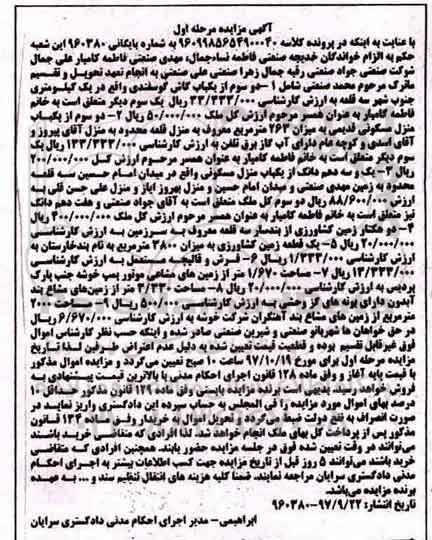 آگهی مزایده مرحله اول
با عنایت به اینکه در پرونده کلاسه ۹۶۰۹۹۸۵۶۵۴۹۰۰۰۴۰ به شماره بایگانی ۹۶۰۳۸۰ این شعبه
حکم به الزام خواندگان خدیجه صنعتی فاطمه نسادجمال؛ مهدی صنعتی فاطمه کامیار علی جمال
شرکت صنعتی جواد صنعتی رقیه جمال زهرا صنعتی علی صنعتی به انجام تعهد تحویل و تقسیم
ماترک مرحوم محمد صنعتی شامل ۱–دو سوم از یکباب کاتی گوسفندی واقع در یک کیلومتری
جنوب شهر سه قلعه به ارزش کارشناسی ۳۳/۳۳۳/۰۰۰ ریال یک سوم دیگر متعلق است به خانم
فاطمه کامیار به عنوان همسر مرحوم ارزش کل ملک ۵۰/۰۰۰/۰۰۰ ریال ۲– دو سوم از یکباب
منزل مسکونی قدیمی به میزان ۲۶۳ مترمربع معروف به منزل قلعه محدود به منزل آقای پیروز و
آقای اسدی و کوچه عام دارای آب گاز برق تلفن به ارزش کارشناسی ۱۳۳/۳۳۳/۰۰۰ ریال یک
سوم دیگر متعلق است به خانم فاطمه کامیار به عنوان همسر مرحوم ارزش کل ۲۰۰/۰۰۰/۰۰۰
ریال ۳– یک و سه دهم دانگ از یکباب منزل مسکونی واقع در میدان امام حسین سه قلعه
محدود به زمین مهدی صنعتی و میدان امام حسین و منزل بهروز ایاز و منزل علی حسن قلی به
ارزش ۸۸/۶۰۰/۰۰۰ ریال دو سوم کل ملک متعلق است به آقای جواد صنعتی و هفت دهم دانگ
نیز متعلق است به خانم فاطمه کامیار به عنوان همسر مرحوم ارزش کل ملک ۴۰۰/۰۰۰/۰۰۰ ریال
۴– دو هکتار زمین کشاورزی از بندسار سه قلعه معروف به سرزمین به ارزش کارشناسی
۲۰/۰۰۰/۰۰۰ ریال ۵– یک قطعه زمین کشاورزی به میزان ۳۸۰۰ مترمربع به نام بندخارستان به
ارزش کارشناسی ۱/۳۳۳/۰۰۰ ریال ۶– فرش و قالیچه مستعمل به ارزش کارشناسی
۱۳/۳۳۳/۰۰۰ ریال ۷– مساحت ۱/۶۷۰ متر از زمین های مشاعی موتور پمپ خوشه جنب پارک
پردیس به ارزش کارشناسی ۲۰/۰۰۰/۰۰۰ ریال ۸– مساحت ۳/۳۳۰ متر از زمین‌های مشاع بند
آبدون دارای بوته های گز وحشی به ارزش کارشناسی ۵۰۰/۰۰۰ ریال ۹– مساحت ۲۰۰۰
مترمربع از زمین های مشاع بند آهنگران شرکت خوشه به ارزش کارشناسی ۶/۶۷۰/۰۰۰ ریال
در حق خواهان ها شهربانو صنعتی و شیرین صنعتی صادر شده و اینکه حسب نظر کارشناس اموال
فوق غیرقابل تقسیم بوده و قطعیت قیمت تعیین شده به دلیل عدم اعتراض طرفین لذا تاریخ
مزایده مرحله اول برای مورخ ۹۷/۱۰/۱۹ ساعت ۱۰ صبح تعیین می‌گردد و مزایده اموال مذکور
با قیمت پایه آغاز و وفق ماده ۱۲۸ قانون اجرای احکام مدنی با بالاترین قیمت پیشنهادی به
فروش خواهد رسید. بدیهی است برنده مزایده بایستی وفق ماده ۱۲۹ قانون مذکور حداقل ۱۰
درصد بهای اموال مورد مزایده را فی المجلس به حساب سپرده این دادگستری واریز نمایند در
صورت انصراف به نفع دولت ضبط می‌گردد و تحویل اموال به خریدار وفق ماده ۱۳۴ قانون
مذکور پس از پرداخت کل بهای ملک انجام خواهد شد. لذا افرادی که متقاضی خرید باشند
می‌توانند در وقت تعیین شده فوق در جلسه مزایده حضور یابند. همچنین افرادی که متقاضی
خرید باشند می‌توانند ۵ روز قبل از تاریخ مزایده جهت کسب اطلاعات بیشتر به اجرای احکام
مدنی دادگستری سرایان مراجعه نمایند. ضمنا کلیه هزینه های انتقال تنظیم سند و ... به عهده
برنده مزایده می‌باشد.
تاریخ انتشار: ۹۷/۹/۲۲–۹۶۰۳۸۰
ابراهیمی– مدیر اجرای احکام مدنی دادگستری سرایان